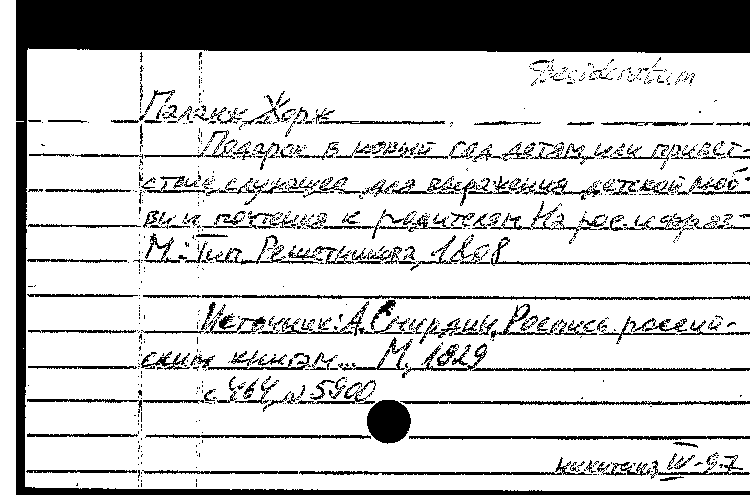 Desideratum
Палакк, Жорж
Подарок в новый год детям, или привет-
ствие, служащее для выражения детской люб-
ви и почтения к родителям На рос. и франз-
М.: Тип. Решетникова, 1808
Источник: А. Смирдин, Роспись россий-
ским книгам... М., 1829
с. 464, № 5900
никитина III-97